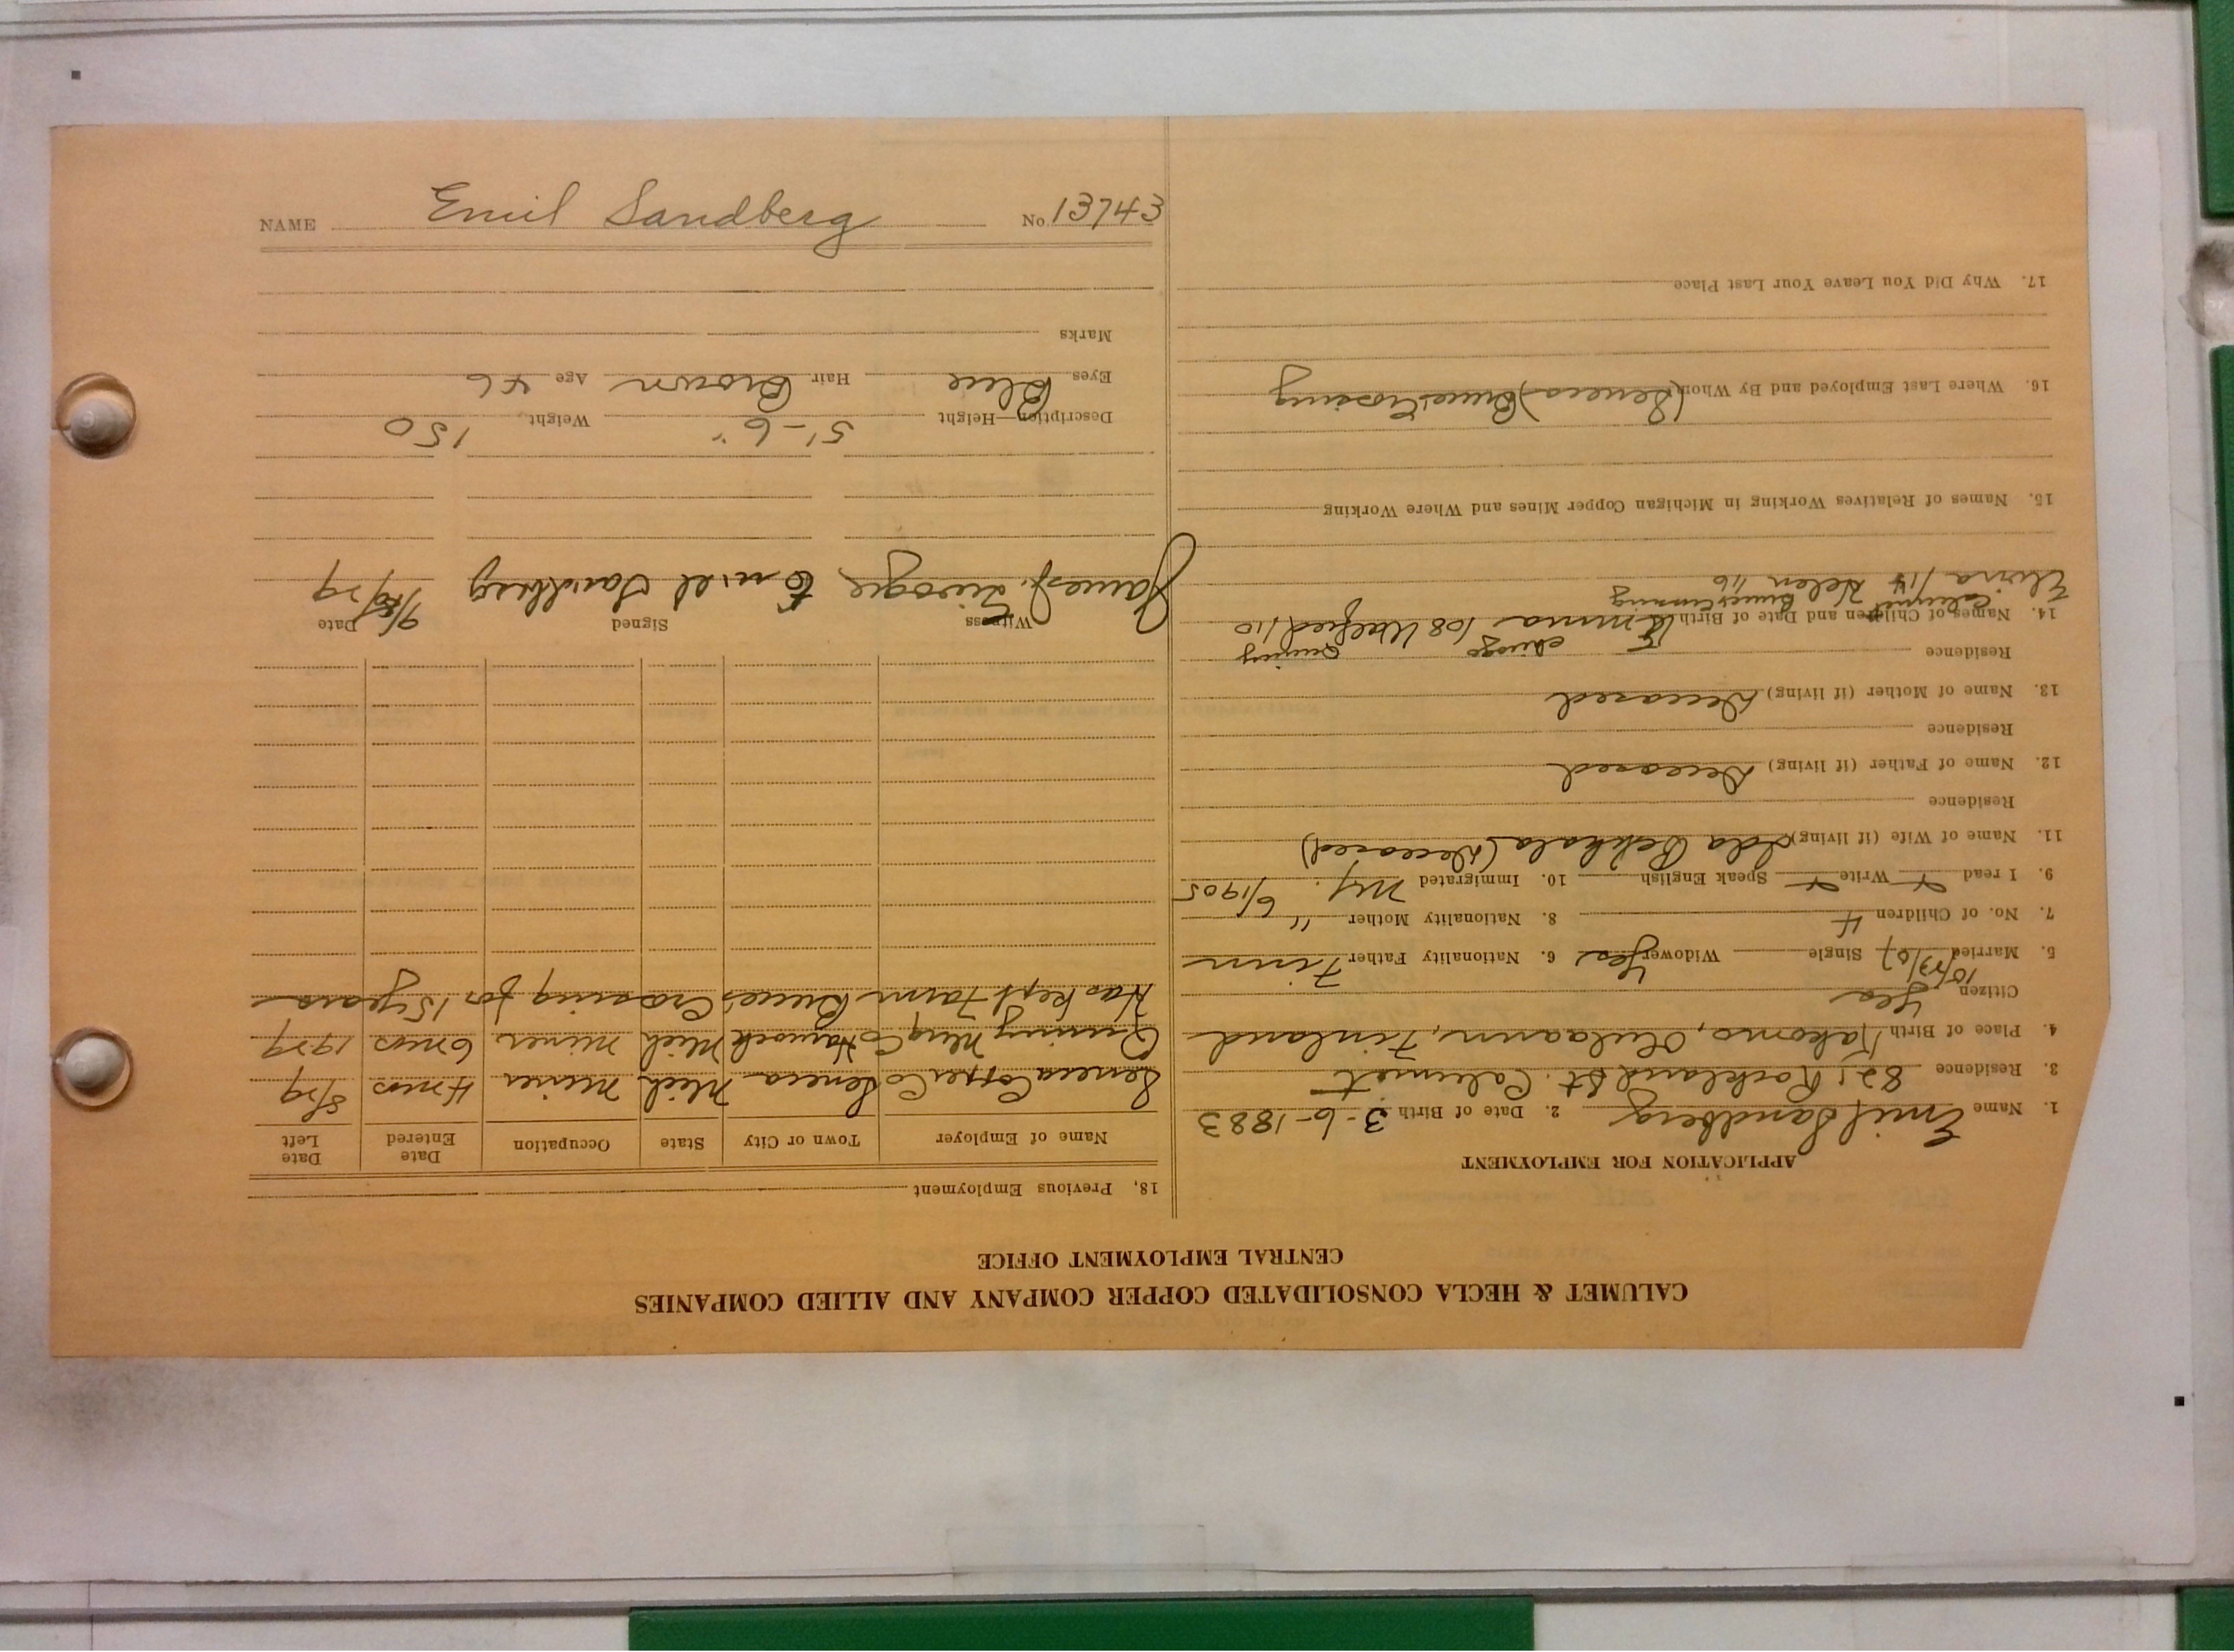 NAME Emil Sandberg No. 13743
CALUMET & HECLA CONSOLIDATED COPPER COMPANY AND ALLIED COMPANIES
CENTRAL EMPLOYMENT OFFICE
APPLICATION FOR EMPLOYMENT
1. Name Emil Sandberg 2. Date of Birth 3-6-1883
3. Residence 821 Rockland St. Calumet
4. Place of Birth Kakomo, Finland
Citizen Yes
10/13/07
5. Married Single Widower Yes 6. Nationality Father Finn
7. No. of Children 4 8. Nationality Mother "
9. I read Write Speak English 10. Immigrated N.Y. 6/1905
11. Name of Wife (if living) Ida Pekkala (Deceased)
Residence
12. Name of Father (if living) Deceased
Residence
13. Name of Mother (if living) Deceased
Residence Chicago Quincy
14. Names of Children and Date of Birth Emma 108 110
Calumet
Elvira /14 Helen /16
15. Names of Relatives Working in Michigan Copper Mines and Where Working
16. Where Last Employed and By Whom (Seneca) Bruce Crossing
17. Why Did You Leave Your Last Place
18, Previous Employment
Name of Employer Town or City State Occupation Date Entered Date Left
Seneca Copper Co Seneca Mich Miner 4 mos 8/29
Quincy Mng Co Hancock Mich Miner 6 mos 1929
Has kept Farm Bruces Crossing for 15 years
Witness Signed Date
James J. Emil Sandberg
Description—Height 5'-6" Weight 150
Eyes Blue Hair Brown Age 46
Marks